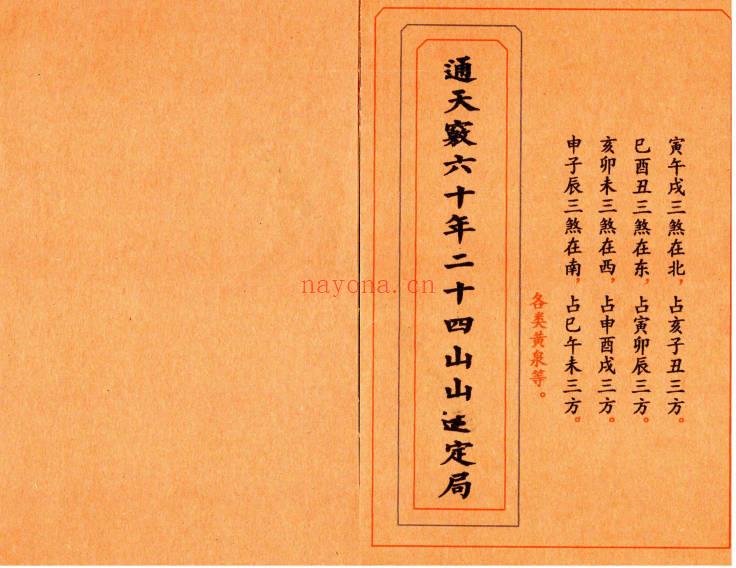 寅午戌三煞在北，占亥子丑三方。
巳酉丑三煞在东，占寅卯辰三方。
亥卯未三煞在西，占申酉戌三方。
申子辰三煞在南，占巳午未三方。
各类黄泉等。
通天竅六十年二十四山山定局
nayona.cn